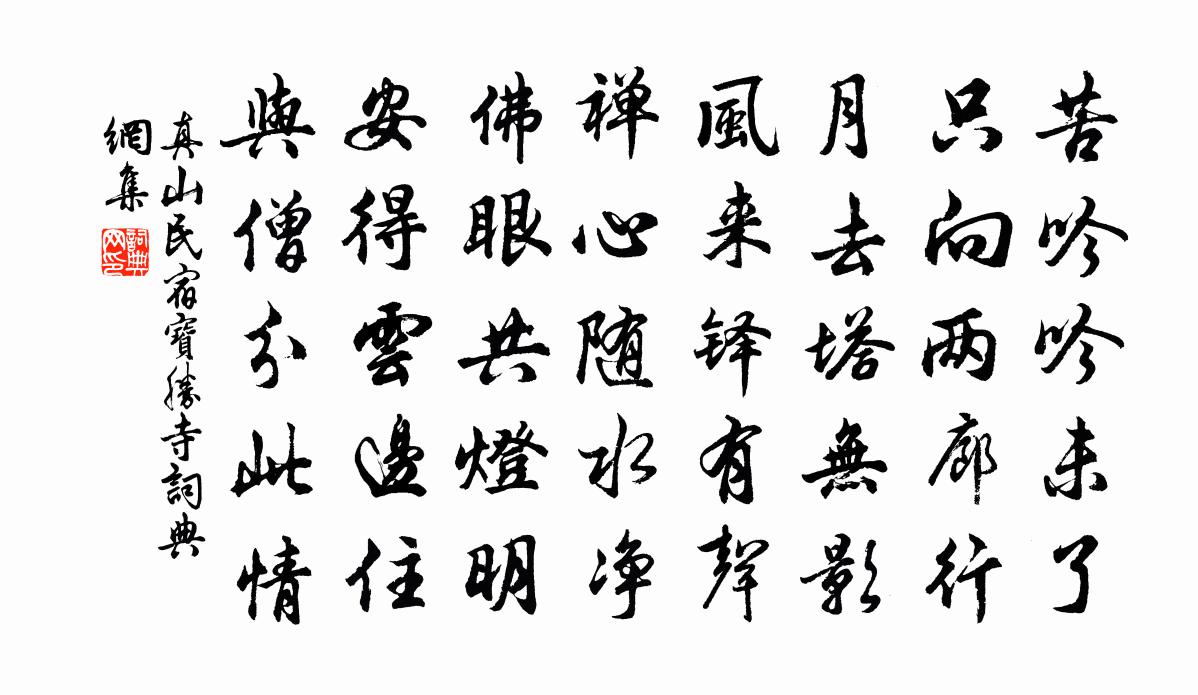 苦吟吟未了
只向两廊行
月去塔無影
風来铎有聲
禅心随水净
佛眼共燈明
安得雲邊住
與僧分此情
真山民宿寶勝寺詞典
網集
詞典
网印